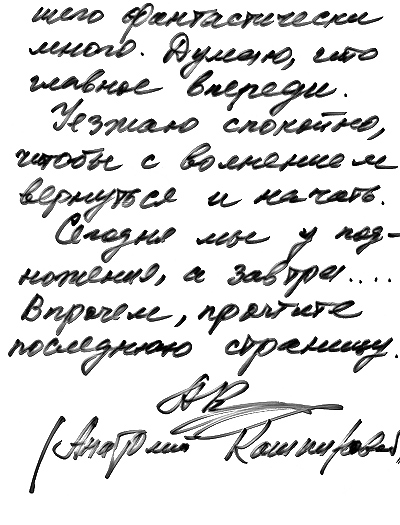 шего фантастически
много. Думаю, что
главное впереди.
Уезжаю спокойно,
чтобы с волнением
вернуться и начать.
Сегодня мы у под-
ножения, а завтра....
Впрочем, прочтите
последнюю страницу.
(Анатолий Кашпировский,